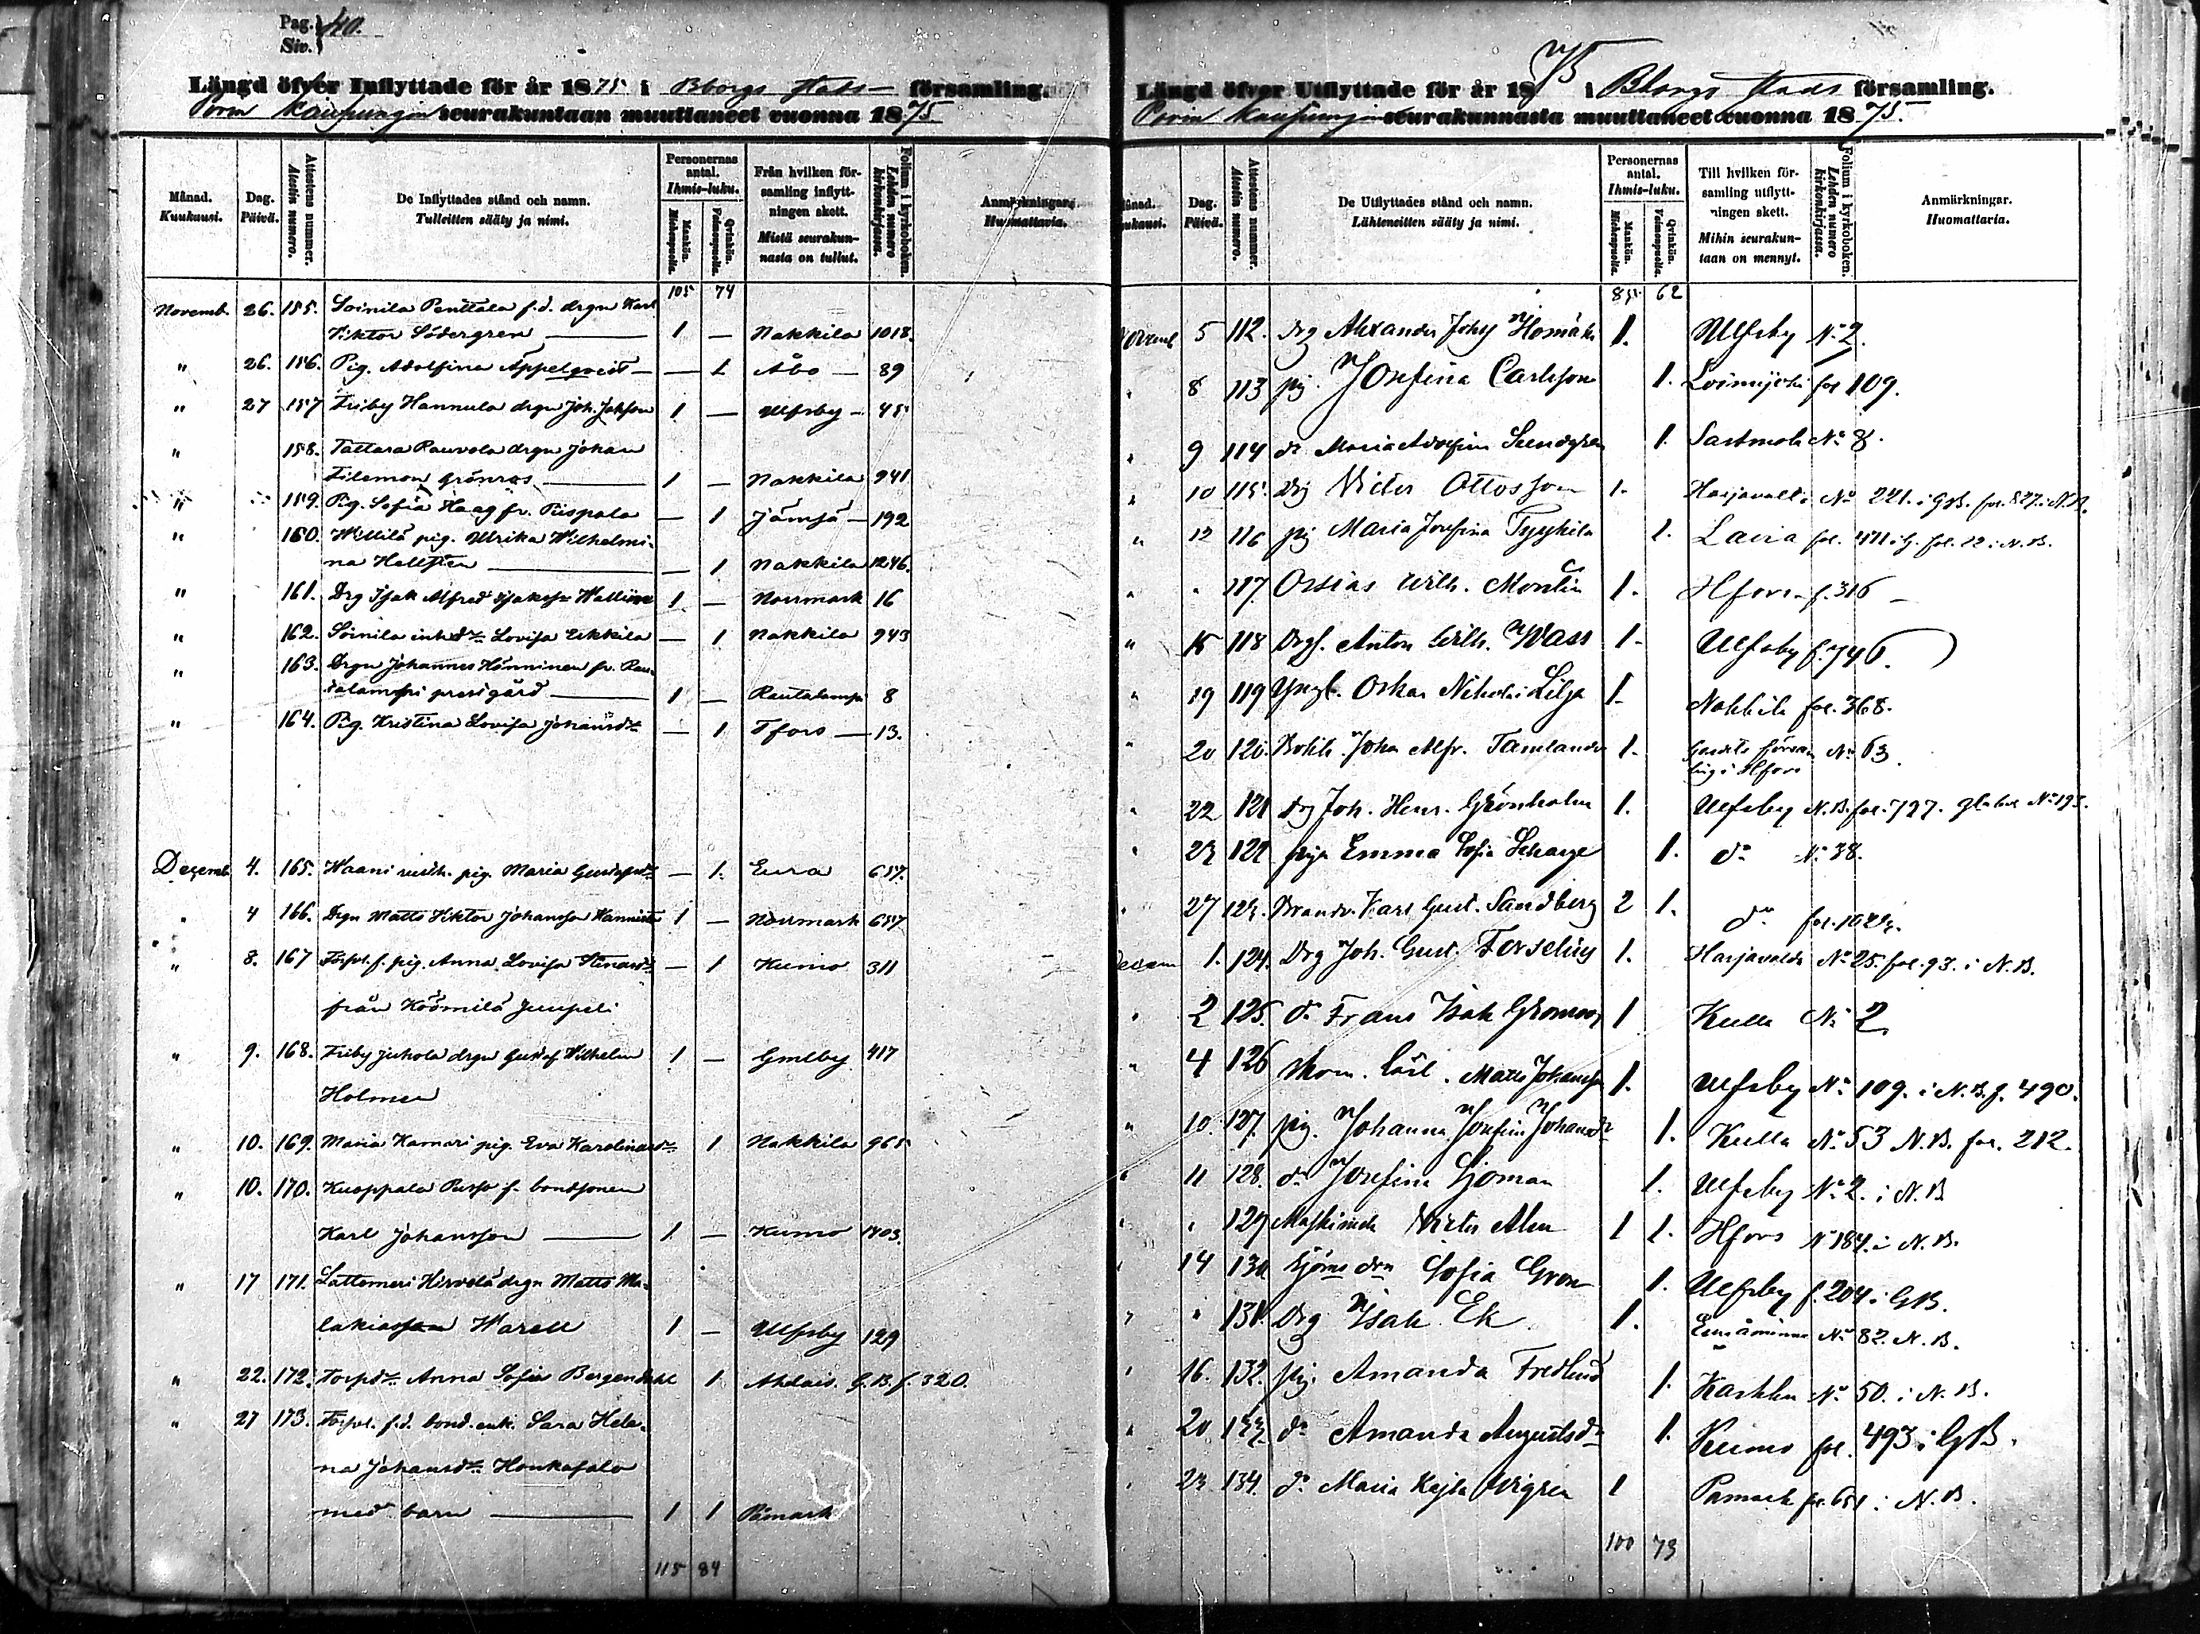 Pag. 40.
Siv.
Längd öfver Inflyttade för år 1875 i Bborgs stads församling.
Porin kaupungin seurakuntaan muuttaneet vuonna 1875
Månad. Kuukausi.
Dag. Päivä.
Attestens nummer. Atestin numero.
De Inflyttades stånd och namn. Tulleitten sääty ja nimi.
Personernas antal. Ihmis-luku.
Mankön. Miehenpuolia.
Qvinkön. Vaimonpuolia.
Från hvilken församling inflyttningen skett. Mistä seurakunnasta on tullut.
Folium i kyrkoboken. Lehden numero kirkonkirjassa.
Anmärkningar. Huomattavia.
105 74
Novemb. 26. 155. Soinila Penttala f.d. drgn Karl
Viktor Södergren 1 — Nakkila 1018.
" 26. 156. Pig. Adolfina Appelqvist — 1 Åbo 89
" 27 157 Friby Hannula drgn Joh. Jakson 1 — Ulfsby 45
" 158. Tattara Rauvola drgn Johan
Filemon Grönros 1 — Nakkila 941
" 159. Pig. Sofia Haag fr. Piispala — 1 Jämsä 192
" 160. Willilä pig. Ulrika Wilhelmi-
na Hellsten — 1 Nakkila 1246.
" 161. Drg Isak Alfred Isaksn Wallin 1 — Norrmark 16
" 162. Soinila inh. dr Lovisa Erkkila — 1 Nakkila 943
" 163. Drgn Johannes Hänninen fr. Rau-
talampi prestgård 1 — Rautalampi 8
" 164. Pig. Kristina Lovisa Johansdr — 1 Tfors 13.
Decemb. 4. 165. Haani rusth. pig. Maria Gustafsdr — 1. Eura 657.
" 4 166. Drgn Matts Viktor Johansson Hannista 1 — Norrmark 657
" 8. 167 Torpd. f. pig. Anna Lovisa — 1 Kumo 311
från Köömilä Juupeli
" 9. 168. Friby Juhola drgn Gustaf Wilhelm 1 — Gmlby 417
Holmen
" 10. 169. Maria Kamari pig. Eva Karolina dr 1 Nakkila 965
" 10. 170. Kuoppala f. bondsonen
Karl Johansson 1 — Kumo 1403.
" 17 171. Lattomeri Hirvelä drgn Matts Ma-
lakiasson Warell 1 — Ulfsby 129
" 22. 172. Torpdr Anna Sofia Bergendahl 1 Ahlais. G.B. f. 320.
" 27 173. Torpd. f.d. bond. enk. Sara Hele-
na Johansdr Honkasalo
med barn 1 1 Påmark
115 84
Längd öfver Utflyttade för år 1875 i Bborgs stads församling.
Porin kaupungin seurakunnasta muuttaneet vuonna 1875.
Månad. Kuukausi.
Dag. Päivä.
Attestens nummer. Atestin numero.
De Utflyttades stånd och namn. Lähteneitten sääty ja nimi.
Personernas antal. Ihmis-luku.
Mankön. Miehenpuolia.
Qvinkön. Vaimonpuolia.
Till hvilken församling utflyttningen skett. Mihin seurakuntaan on mennyt.
Folium i kyrkoboken. Lehden numero kirkonkirjassa.
Anmärkningar. Huomattavia.
85 62
Novemb 5 112. Drg Alexander Johs Homäki 1. Ulfsby No 2.
" 8 113 pig. Josefina Carlsson 1. Loimijoki fol 109.
" 9 114 do Maria Adolfina Sundgren 1. Sastmola No 8.
" 10 115. Drg Victor Ottosson 1. Harjavalta No 221. i GB. fol. 827. i N.B.
" 12 116 pig Maria Josefina Tyykilä 1. Lavia fol. 411 i G. fol. 12 i N.B.
" " 117. Ossias Wilh. Montin 1. Hfors f. 316
" 15 118 Drgs. Anton Wilh. Wass 1. Ulfsby f. 746.
" 19 119 Yngl. Oskar Nikolai Lilja 1. Nakkila fol. 368.
" 20 120. Bokh. Johan Alfr. Tamlander 1. Gardets försam- No 63.
ling i Hfors
" 22 121 Drg Joh. Henr. Grönholm 1. Ulfsby N.B. fol. 727. gla bok No 193.
" 23 122 piga Emma Sofia 1. do No 38.
" 27 123. Brandv. Karl Gust. Sandberg 2 1. do fol. 1023.
Decem 1. 124. Drg Joh. Gust. Forselius 1. Harjavalta No 25. fol. 93. i N.B.
" 2 125. do Frans Isak Gronroos 1 Kulla No 2
" 4 126 Skom. lärl. Matts Johansson 1. Ulfsby No 109. i N.B. f. 490.
" 10. 127. pig. Johanna Josefina Johansdr 1. Kulla No 53 N.B. fol. 212.
" 11 128. do Josefina Sjoman 1. Ulfsby No 2. i N.B
" " 129 Maskinistn Victor Alen 1 1. Hfors No 184. i N.B.
" 14 130 Sjöms drn Sofia Gron 1. Ulfsby f. 204 i GB.
" " 131. Drg Isak Ek 1. Euraåminne No 82. N.B.
" 16. 132. pig. Amanda Fredlund 1. Karkku No 50. i N.B.
" 20 133. do Amanda Augustsdr 1. Kumo fol. 493 i GB.
" 23 134. do Maria Kajsa Wigren 1 Pamark fol. 651 i N.B.
100 73